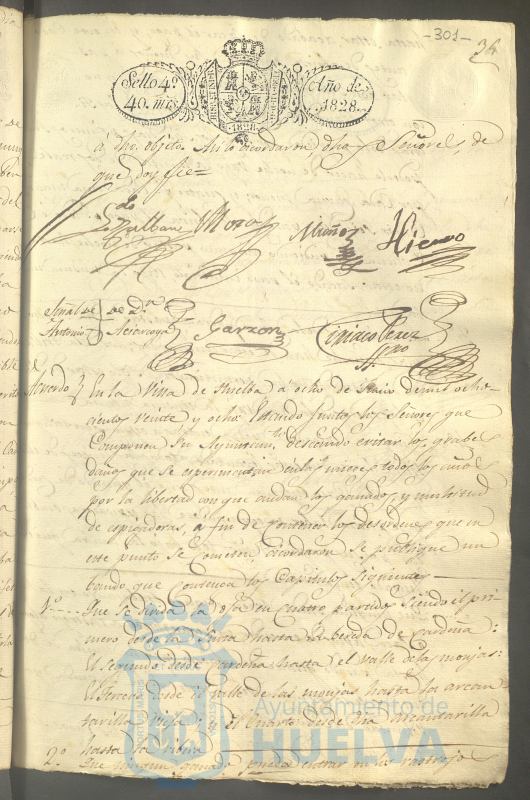 -301-
34
Sello 4º
40. mrs.
Año de
1828.
1828
á dho. objeto. Asi lo acordaron dhos. Señores, de
que doy fee=
Mora Muñoz Hierro
Señal de de Dn.
Antonio Garzon Ciriaco Perez
Ssno
Acuerdo En la Villa de Huelba á ocho de Junio de mil ocho-
cientos veinte y ocho Estando juntos los Señores que
Componen su Ayuntamto. deseando evitar los grabes
daños que se esperimentan en las mieses todos los años
por la libertad con que andan los ganados, y multitud
de espigadoras, á fin de contener los desordenes que en
este punto se cometen acordaron se publique un
bando que contenga los Capitulos siguientes
1º.... Que se divida la en cuatro partidos siendo el pri-
mero desde la hasta la bereda de Cardeña:
El segundo desde Cardeña hasta el valle de las monjas:
El tercero desde el valle de las monjas hasta la alcan-
tarilla vieja; y el cuarto desde dha alcantarilla
hasta la Ribera
2º. Que ningun ganado pueda entrar en los rastrojos
Ayuntamiento de
HUELVA